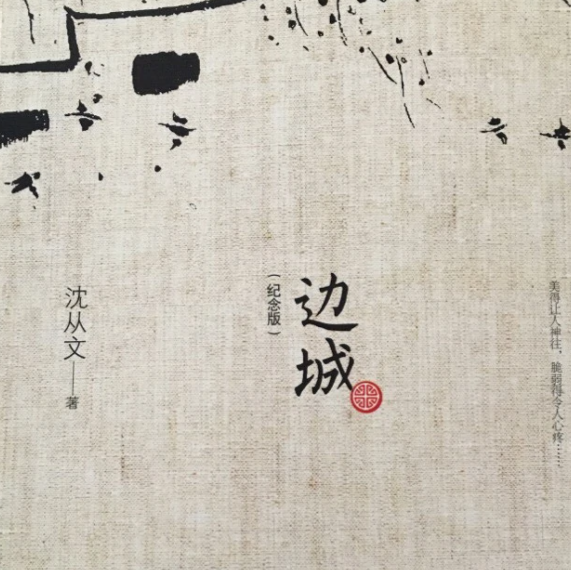 美得让人神往，脆弱得令人心疼……
边城
（纪念版）
沈从文——著